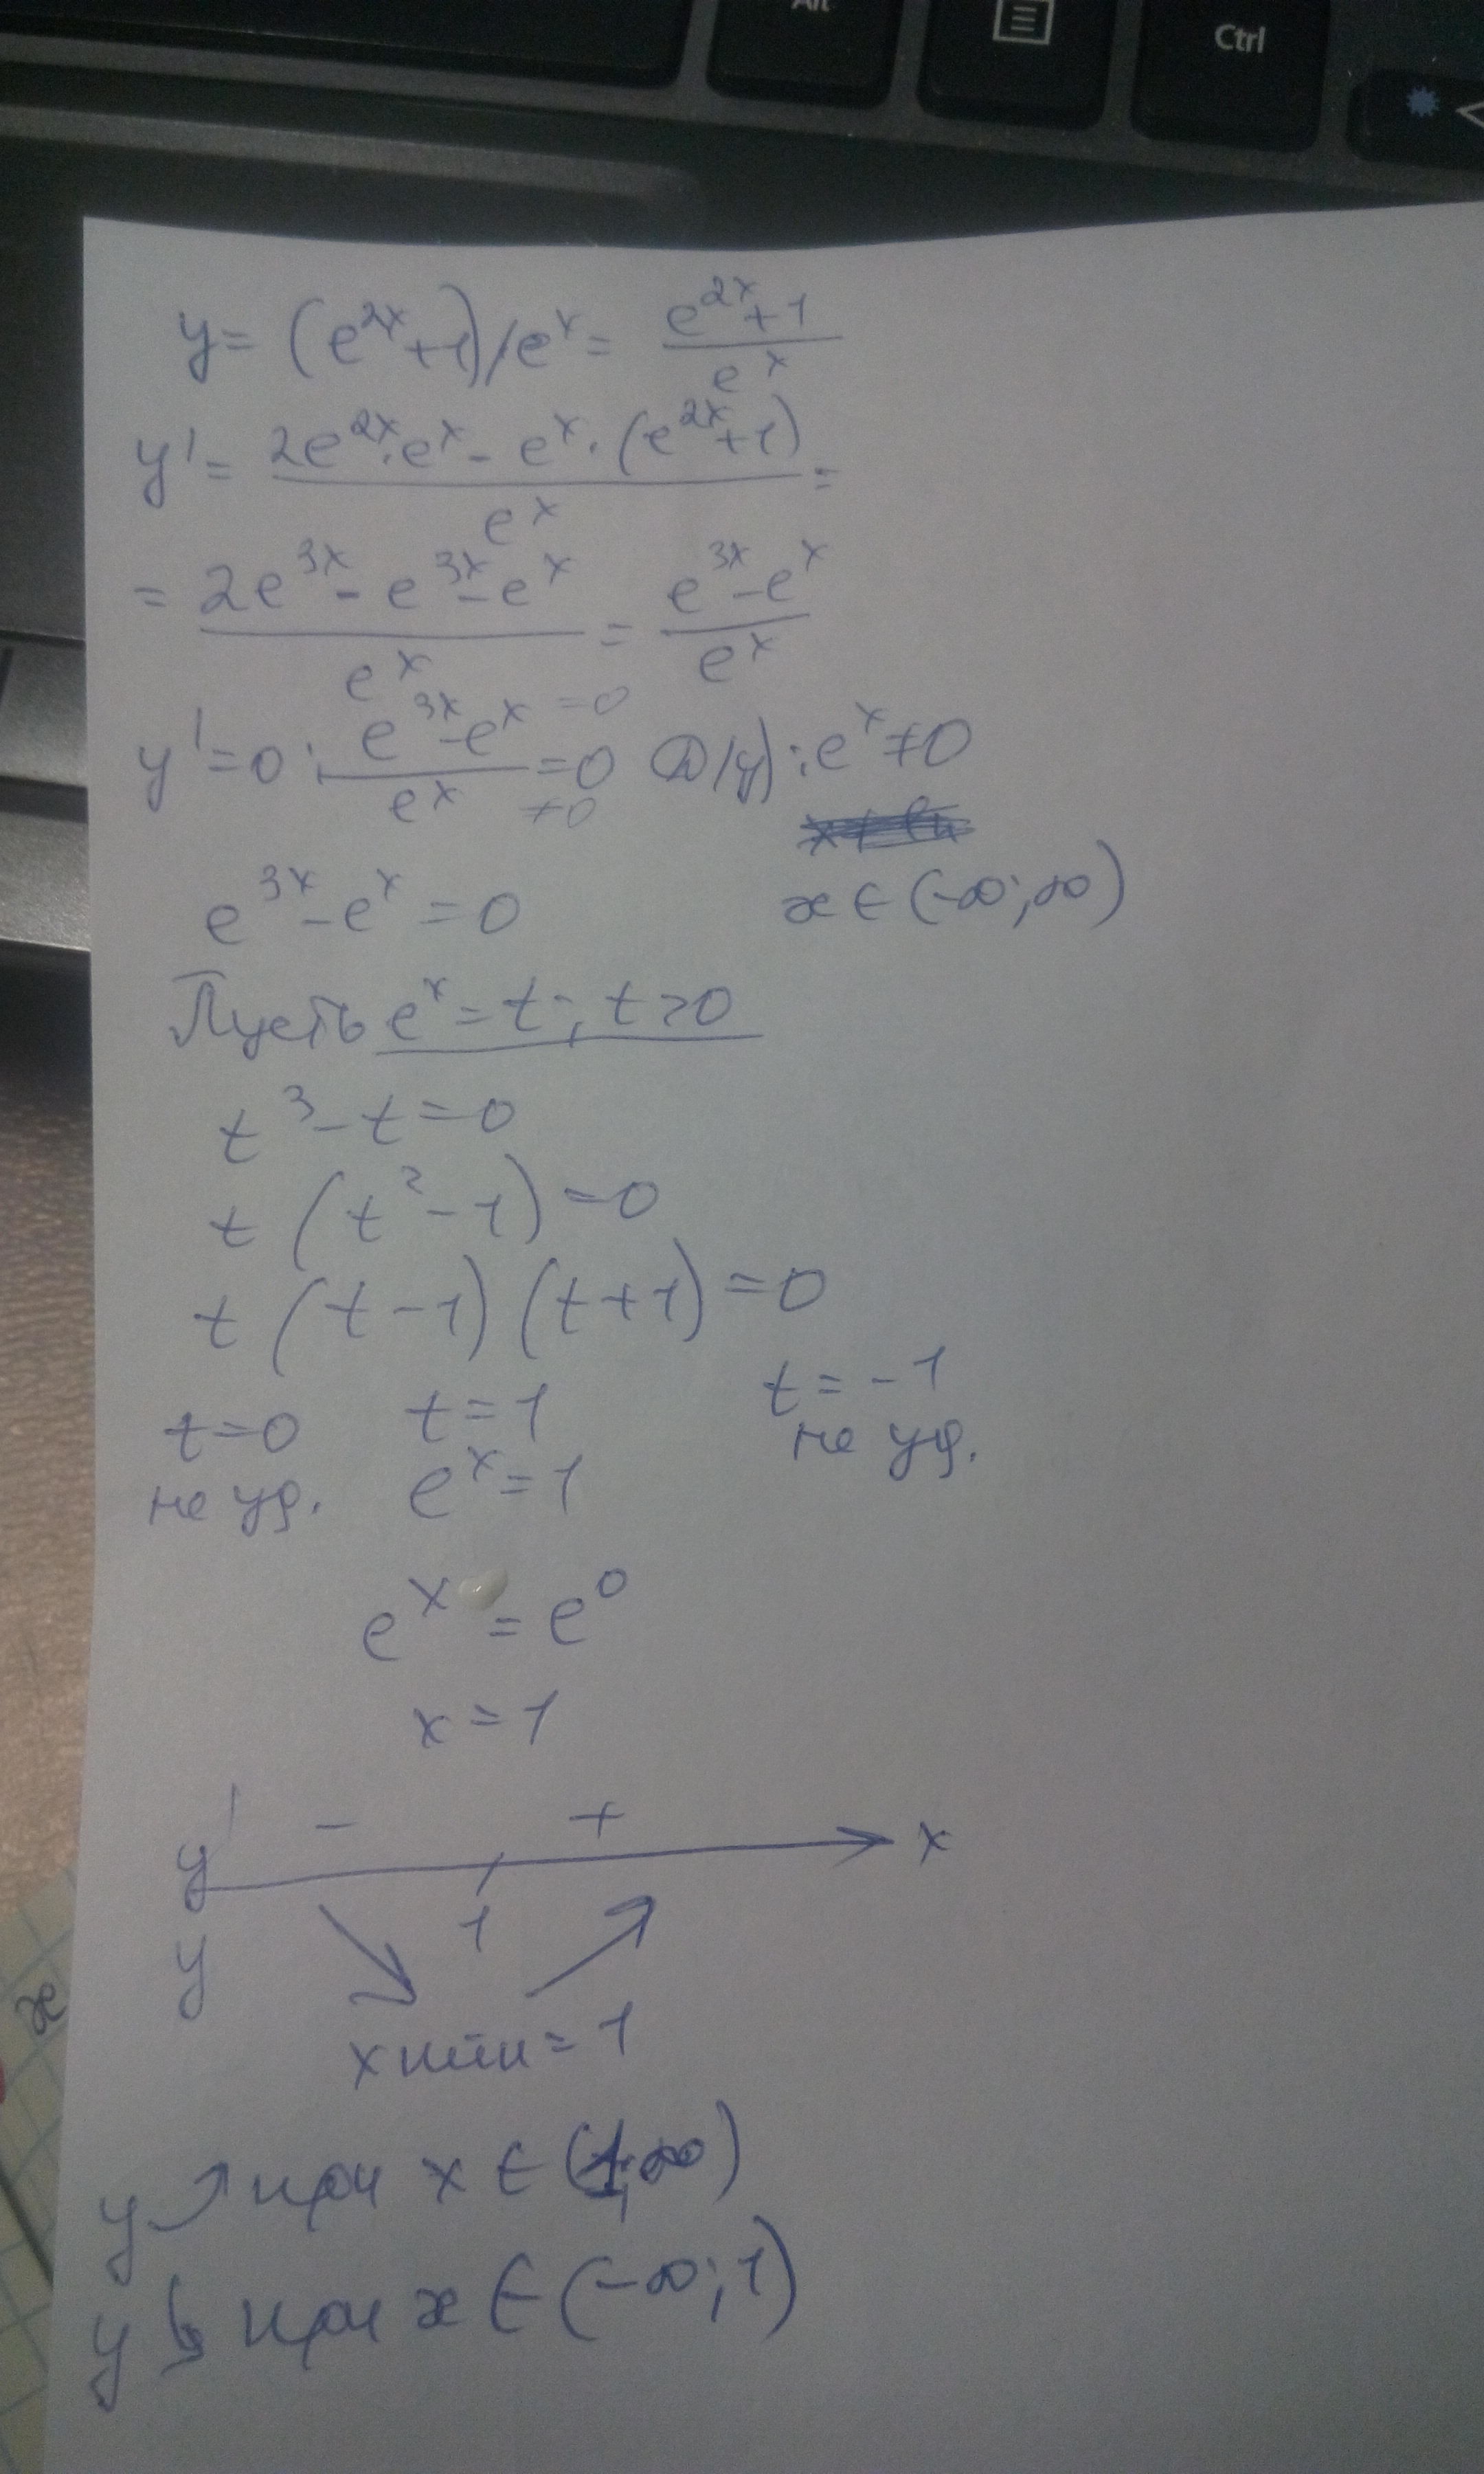 Alt
Ctrl
y = (e^{2x}+1)/e^x = \frac{e^{2x}+1}{e^x}
y' = \frac{2e^{2x}·e^x - e^x·(e^{2x}+1)}{e^x} =
= \frac{2e^{3x} - e^{3x} - e^x}{e^x} = \frac{e^{3x} - e^x}{e^x}
y' = 0: \frac{e^{3x} - e^x = 0}{e^x ≠ 0} = 0 D(y): e^x ≠ 0
e^{3x} - e^x = 0 x ∈ (-∞; ∞)
Пусть e^x = t; t > 0
t^3 - t = 0
t (t^2 - 1) = 0
t (t - 1) (t + 1) = 0
t = 0 t = 1 t = -1
не уд. e^x = 1 не уд.
e^x = e^0
x = 1
y' - + x
1
y
x min = 1
y ↗ при x ∈ (1; ∞)
y ↘ при x ∈ (-∞; 1)
x